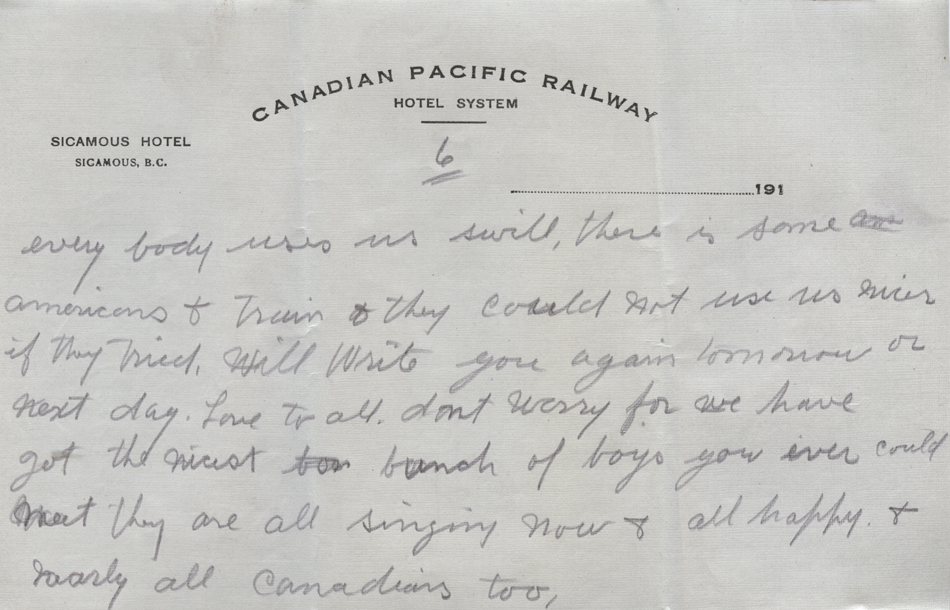 CANADIAN PACIFIC RAILWAY
HOTEL SYSTEM
SICAMOUS HOTEL
SICAMOUS, B.C.
6
191
every body uses us swill, there is some am
americans & Train & they could not use us nicer
if they tried. Will Write you again tomorrow or
next day. Love to all. dont Worry for we have
got the nicest bon bunch of boys you ever could
meet they are all singing now & all happy. &
nearly all Canadians too,